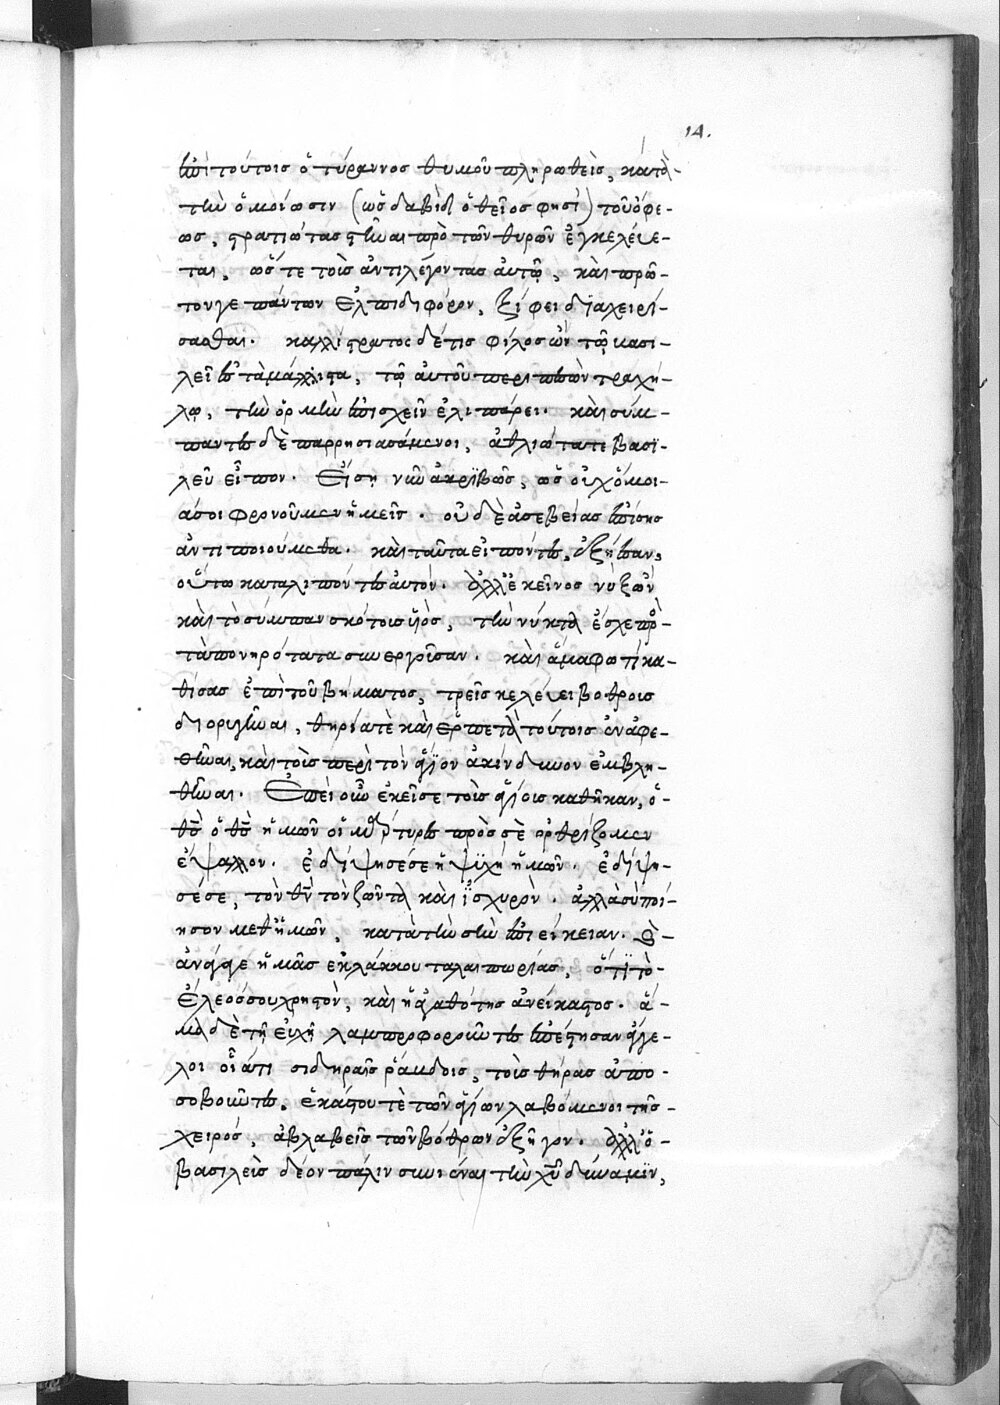 14.
ἐπὶ τούτοις ὁ τύραννος θυμοῦ πληρωθεὶς, κατὰ
τὴν ὁμοίωσιν (ὡς δαβὶδ ὁ θεῖος φησὶ) τοῦ ὄφε-
ως, στρατιώτας στῆναι πρὸ τῶν θυρῶν ἐγκελεύε-
ται, ὥστε τοὶς ἀντιλέγοντας αὐτῷ, καὶ πρῶ-
τον γε πάντων ἐλπιδιφόρον, ξίφει διαχειρί-
σασθαι. καλλίστρατος δέ τις φίλος ὢν τῷ βασι-
λεῖ ἐς τὰ μάλιστα, τῷ αὐτοῦ περιπεσὼν τραχή-
λῳ, τὴν ὁρμὴν ἐπισχεῖν ἐλιπάρει. καὶ σύμ-
παντες δὲ παρρησιασάμενοι, ἀθλιώτατε βασι-
λεῦ εἶπον. Εἴση νῦν ἀκριβῶς, ὡς οὐχ ὅμοι-
ά σοι φρονοῦμεν ἡμεῖς. οὐδὲ ἀσεβείας ἐπίσης
ἀντιποιούμεθα. καὶ ταῦτα εἰπόντες, ἐξήεσαν,
οὕτω καταλιπόντες αὐτόν. ἀλλ' ἐκεῖνος νὺξ ὢν
καὶ τὸ σύμπαν σκότους υἱὸς, τὴν νύκτα ἔσχε πρὸ-
τὰ πονηρότατα συνεργοῦσαν. καὶ ἅμα φωτὶ κα-
θίσας ἐπὶ τοῦ βήματος, τρεῖς κελεύει βόθρους
διορυγῆναι, θηρία τὲ καὶ ἑρπετὰ τούτοις ἐναφε-
θῆναι, καὶ τοὶς περὶ τὸν ἅγιον ἀκίνδυνον ἐμβλη-
θῆναι. Ἐπεὶ οὖν ἐκεῖσε τοὶς ἁγίους καθῆκαν, ὁ
θς ὁ θς ἡμῶν οἱ μάρτυρες πρὸς σὲ ὀρθρίζομεν
ἔψαλλον. ἐδίψησέ σε ἡ ψυχὴ ἡμῶν. ἐδίψη-
σέ σε, τὸν θν τὸν ζῶντα καὶ ἰσχυρὸν. ἀλλὰ σὺ ποί-
ησον μεθ' ἡμῶν, κατὰ τὴν σὴν ἐπιείκειαν. Καὶ
ἀνάγαγε ἡμᾶς ἐκ λάκκου ταλαιπωρίας, ὅτι τὸ
ἔλεός σου χρηστὸν, καὶ ἡ ἀγαθότης ἀνείκαστος. ἅ-
μα δὲ τῇ εὐχῇ λαμπροφοροῦντες ἐπέστησαν ἄγγε-
λοι οἳ ἅτι σιδηραῖς ῥάβδοις, τοὶς θήρας ἀπο-
σοβοῦντες. ἑκάστου τὲ τῶν ἁγίων λαβόμενοι τῆς
χειρός, ἀβλαβεῖς τῶν βόθρων ἐξῆγον. ἀλλ' ὁ
βασιλεὺς δέον πάλιν συνιέναι τὴν χυ δύναμιν,